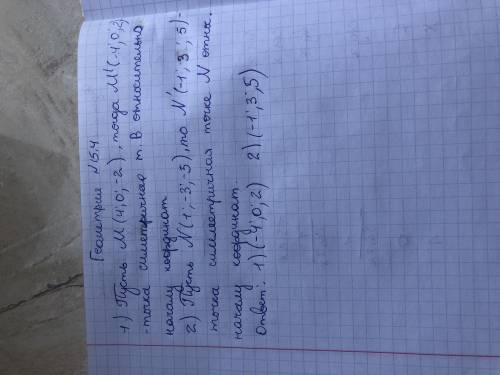 Геометрия №15.4
1) Пусть M(4;0;-2), тогда M'(-4;0;2)
-точка симетричная т. В относительно
начало координат
2) Пусть N(1;-3;-5), то N'(-1;3;5)-
точка симметричная точке N отны.
началу координат.
Ответ: 1)(-4;0;2) 2)(-1;3;5)